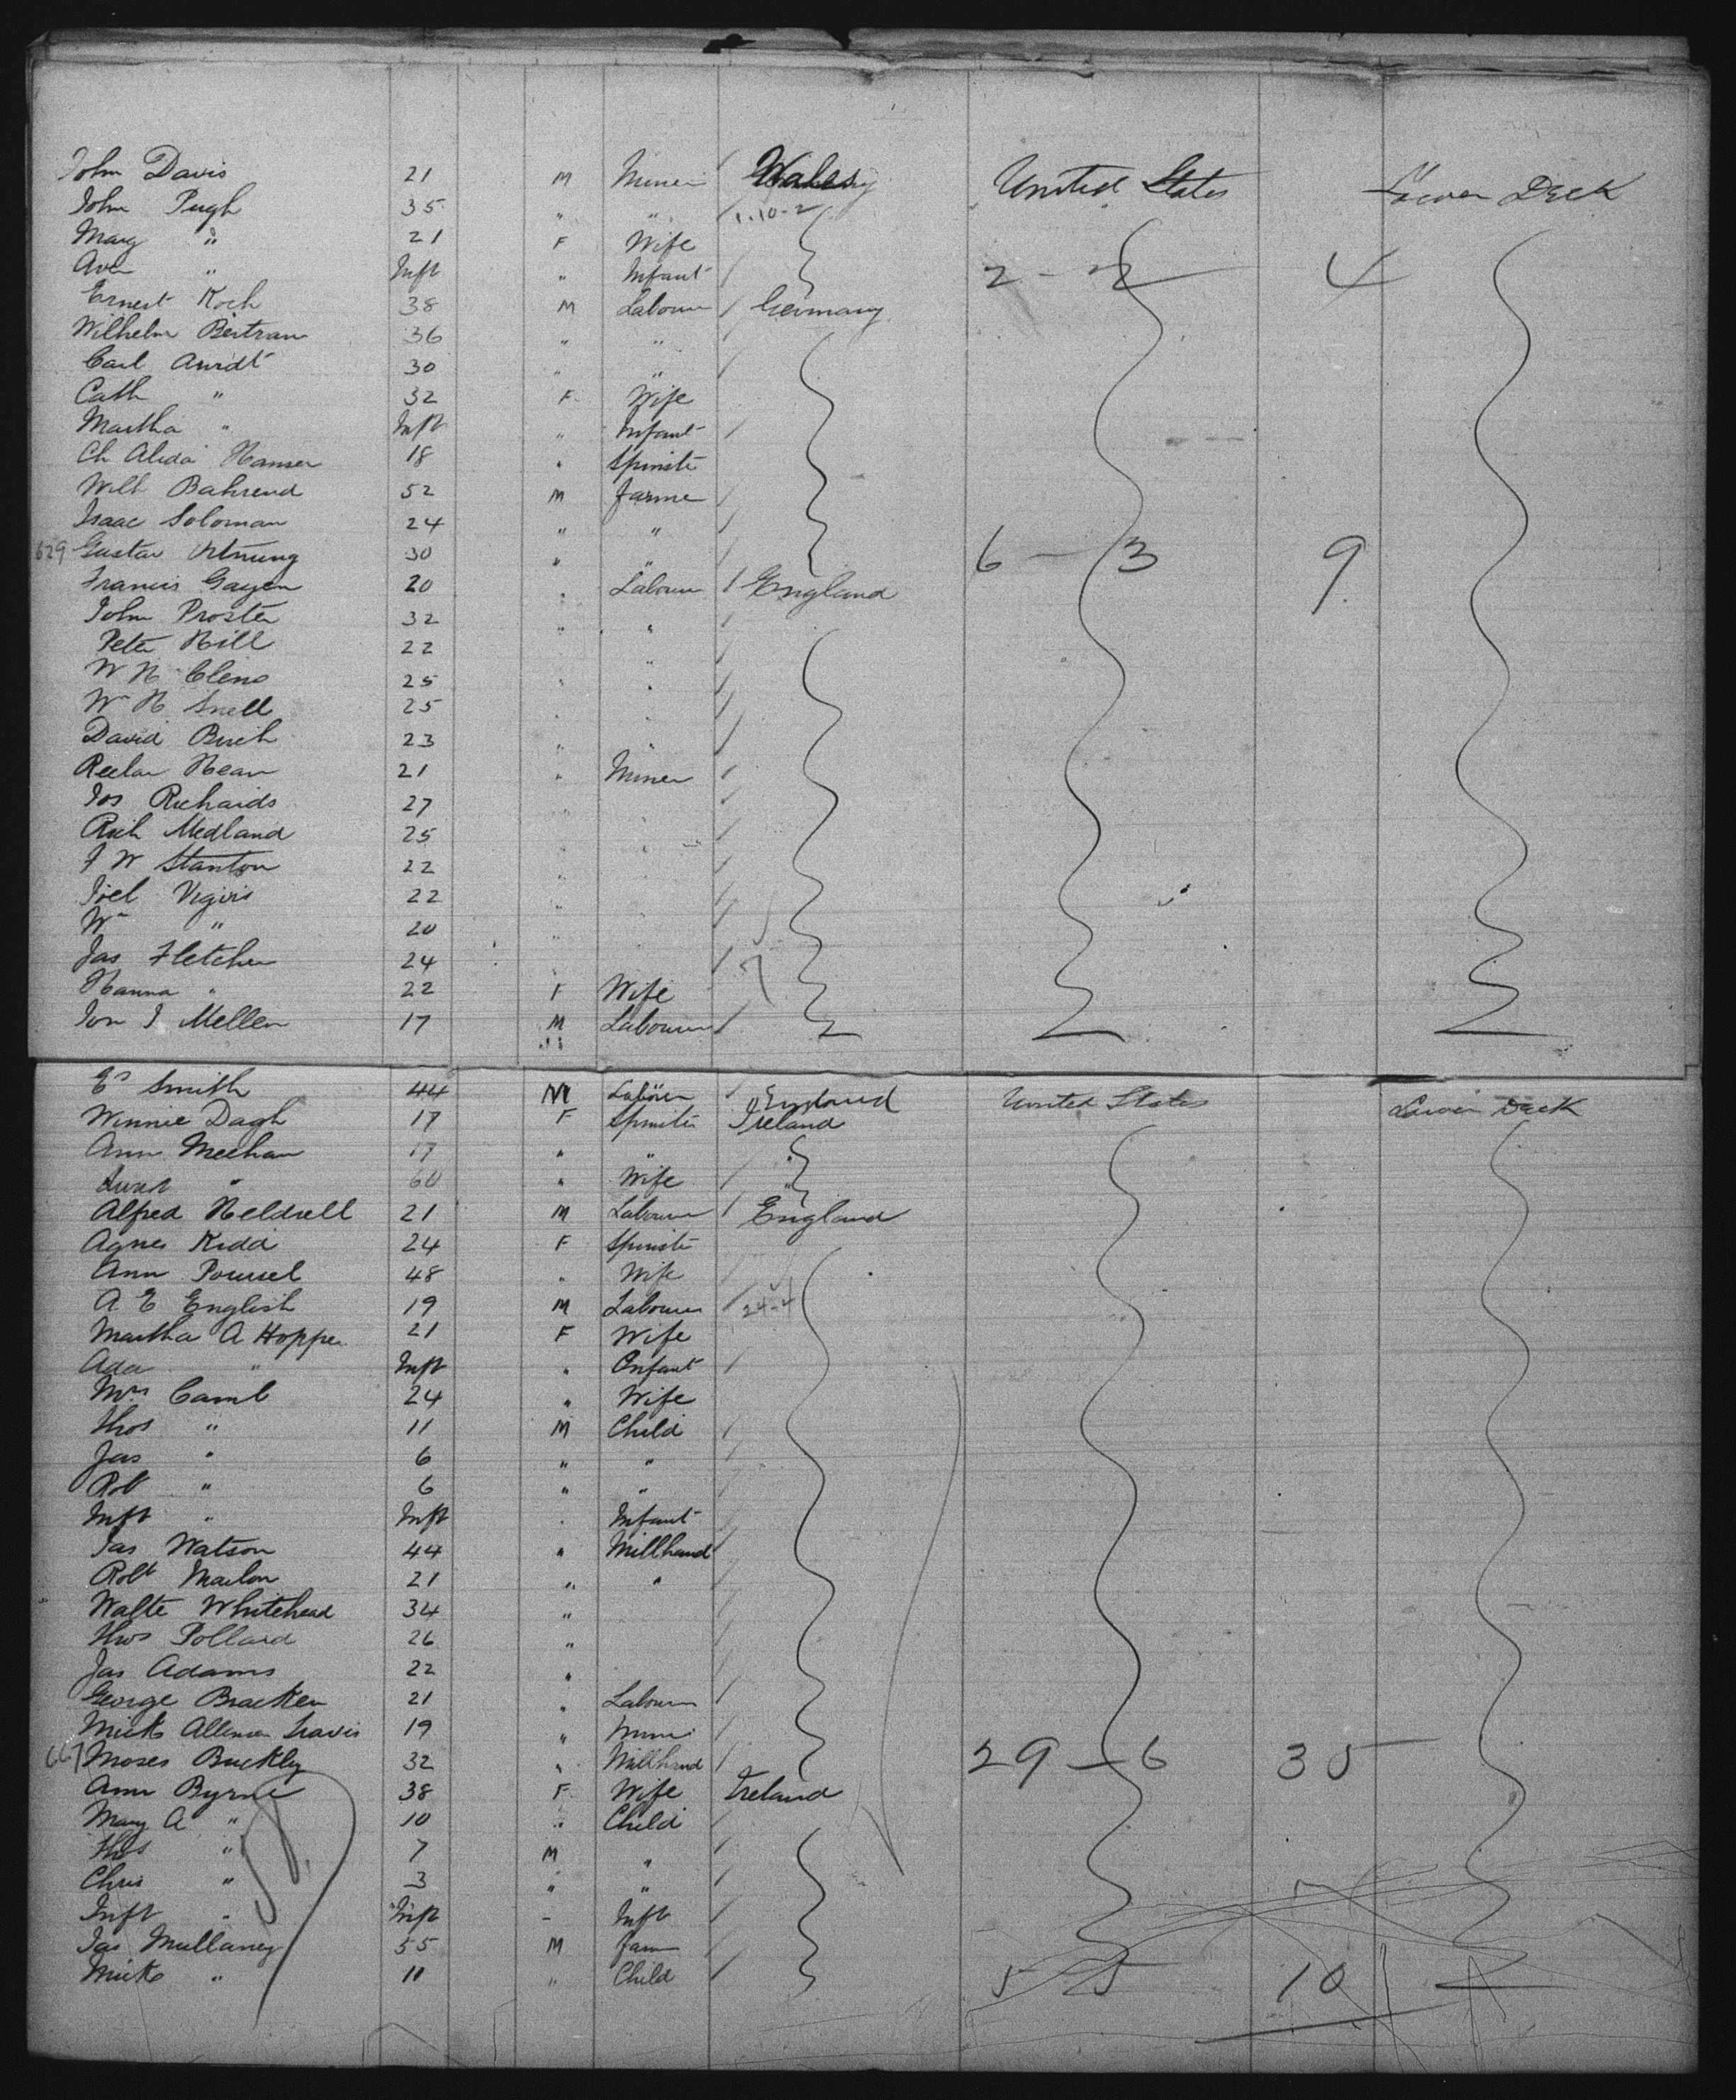 John Davis 21 M Miner Wales United States Lower Deck
John Pugh 35 " " 1.10-2
Marg " 21 F Wife
" Inft " Infant 2 - 2 4
Ernest Koch 38 M Labourer Germany
Wilhelm Bertram 36 " "
Carl Arndt 30 " "
Cath " 32 F Wife
Martha " Inft " Infant
Ch Alida Hansen 18 " Spinster
Wilh Bahrend 52 M Farmer
Isaac Soloman 24 " "
629 Gustav 30 " " 6 - 3 9
Francis Gayen 20 " Labourer England
John Proster 32 " "
Peter Hill 22 "
W H 25 " "
Wm H Snell 25 " "
David Buch 23 " "
21 " Miner
Jos Richards 27 "
Rich Medland 25 " "
F W Stanton 22 "
Joel 22 "
Wm " 20 "
Jas Fletcher 24 "
Hanna " 22 F Wife
17 M Labourer
Smith 44 M Labourer England United States Lower Deck
Winnie Dagh 17 F Spinster Ireland
Ann Meehan 17 " " "
" 60 " Wife "
Alfred 21 M Labourer England
Agnes Kidd 24 F Spinster
Ann 48 " Wife
A E English 19 M Labourer 24-4
Martha A Hopper 21 F Wife
Ada " Inft " Infant
Mrs 24 " Wife
Thos " 11 M Child
Jas " 6 " "
Rob " 6 " "
Inft " Inft " Infant
Jas Watson 44 " Millhand
Robt 21 " "
Walter Whitehead 34 "
Thos Pollard 26 "
Jas Adams 22 "
George Bracken 21 " Labourer
Mick Travis 19 " Miner
667 Moses Buckley 32 " Millhand 29 - 6 35
Ann Byrne 38 F Wife Ireland
Mary A " 10 " Child
Thos " 7 M "
Chris " 3 " "
Inft " Inft - Inft
Jas Mullaney 55 M Farm
Mick " 11 " Child 5 5 10